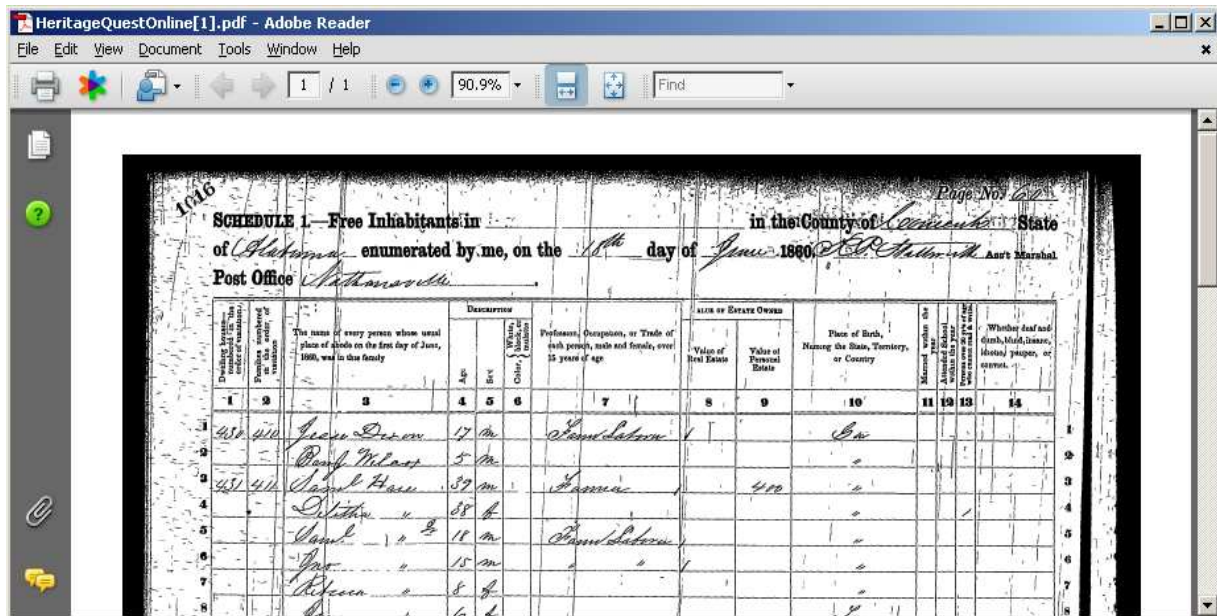 HeritageQuestOnline[1].pdf - Adobe Reader
File Edit View Document Tools Window Help
1 / 1 90.9% Find
1016
Page No. 60
SCHEDULE 1.—Free Inhabitants in in the County of Conecuh State
of Alabama enumerated by me, on the 18th day of June 1860. Ass't Marshal
Post Office
DESCRIPTION
VALUE OF ESTATE OWNED
Dwelling houses— numbered in the order of visitation.
Families numbered in the order of visitation
The name of every person whose usual place of abode on the first day of June, 1860, was in this family
Age
Sex
Color, White, black, or mulatto
Profession, Occupation, or Trade of each person, male and female, over 15 years of age
Value of Real Estate
Value of Personal Estate
Place of Birth, Naming the State, Territory, or Country
Married within the year
Attended School within the year
Persons over 20 y'rs of age who cannot read & write
Whether deaf and dumb, blind, insane, idiotic, pauper, or convict.
1 2 3 4 5 6 7 8 9 10 11 12 13 14
1 430 410 Jesse Dixon 17 m Farm Laborer / Ga 1
2 5 m " 2
3 431 411 Saml Hare 39 m Farmer 400 " 3
4 " 38 f " / 4
5 Saml " 18 m Farm Laborer / " 5
6 Jno " 15 m " " / " 6
7 Rebecca " 8 f " 7
8 8